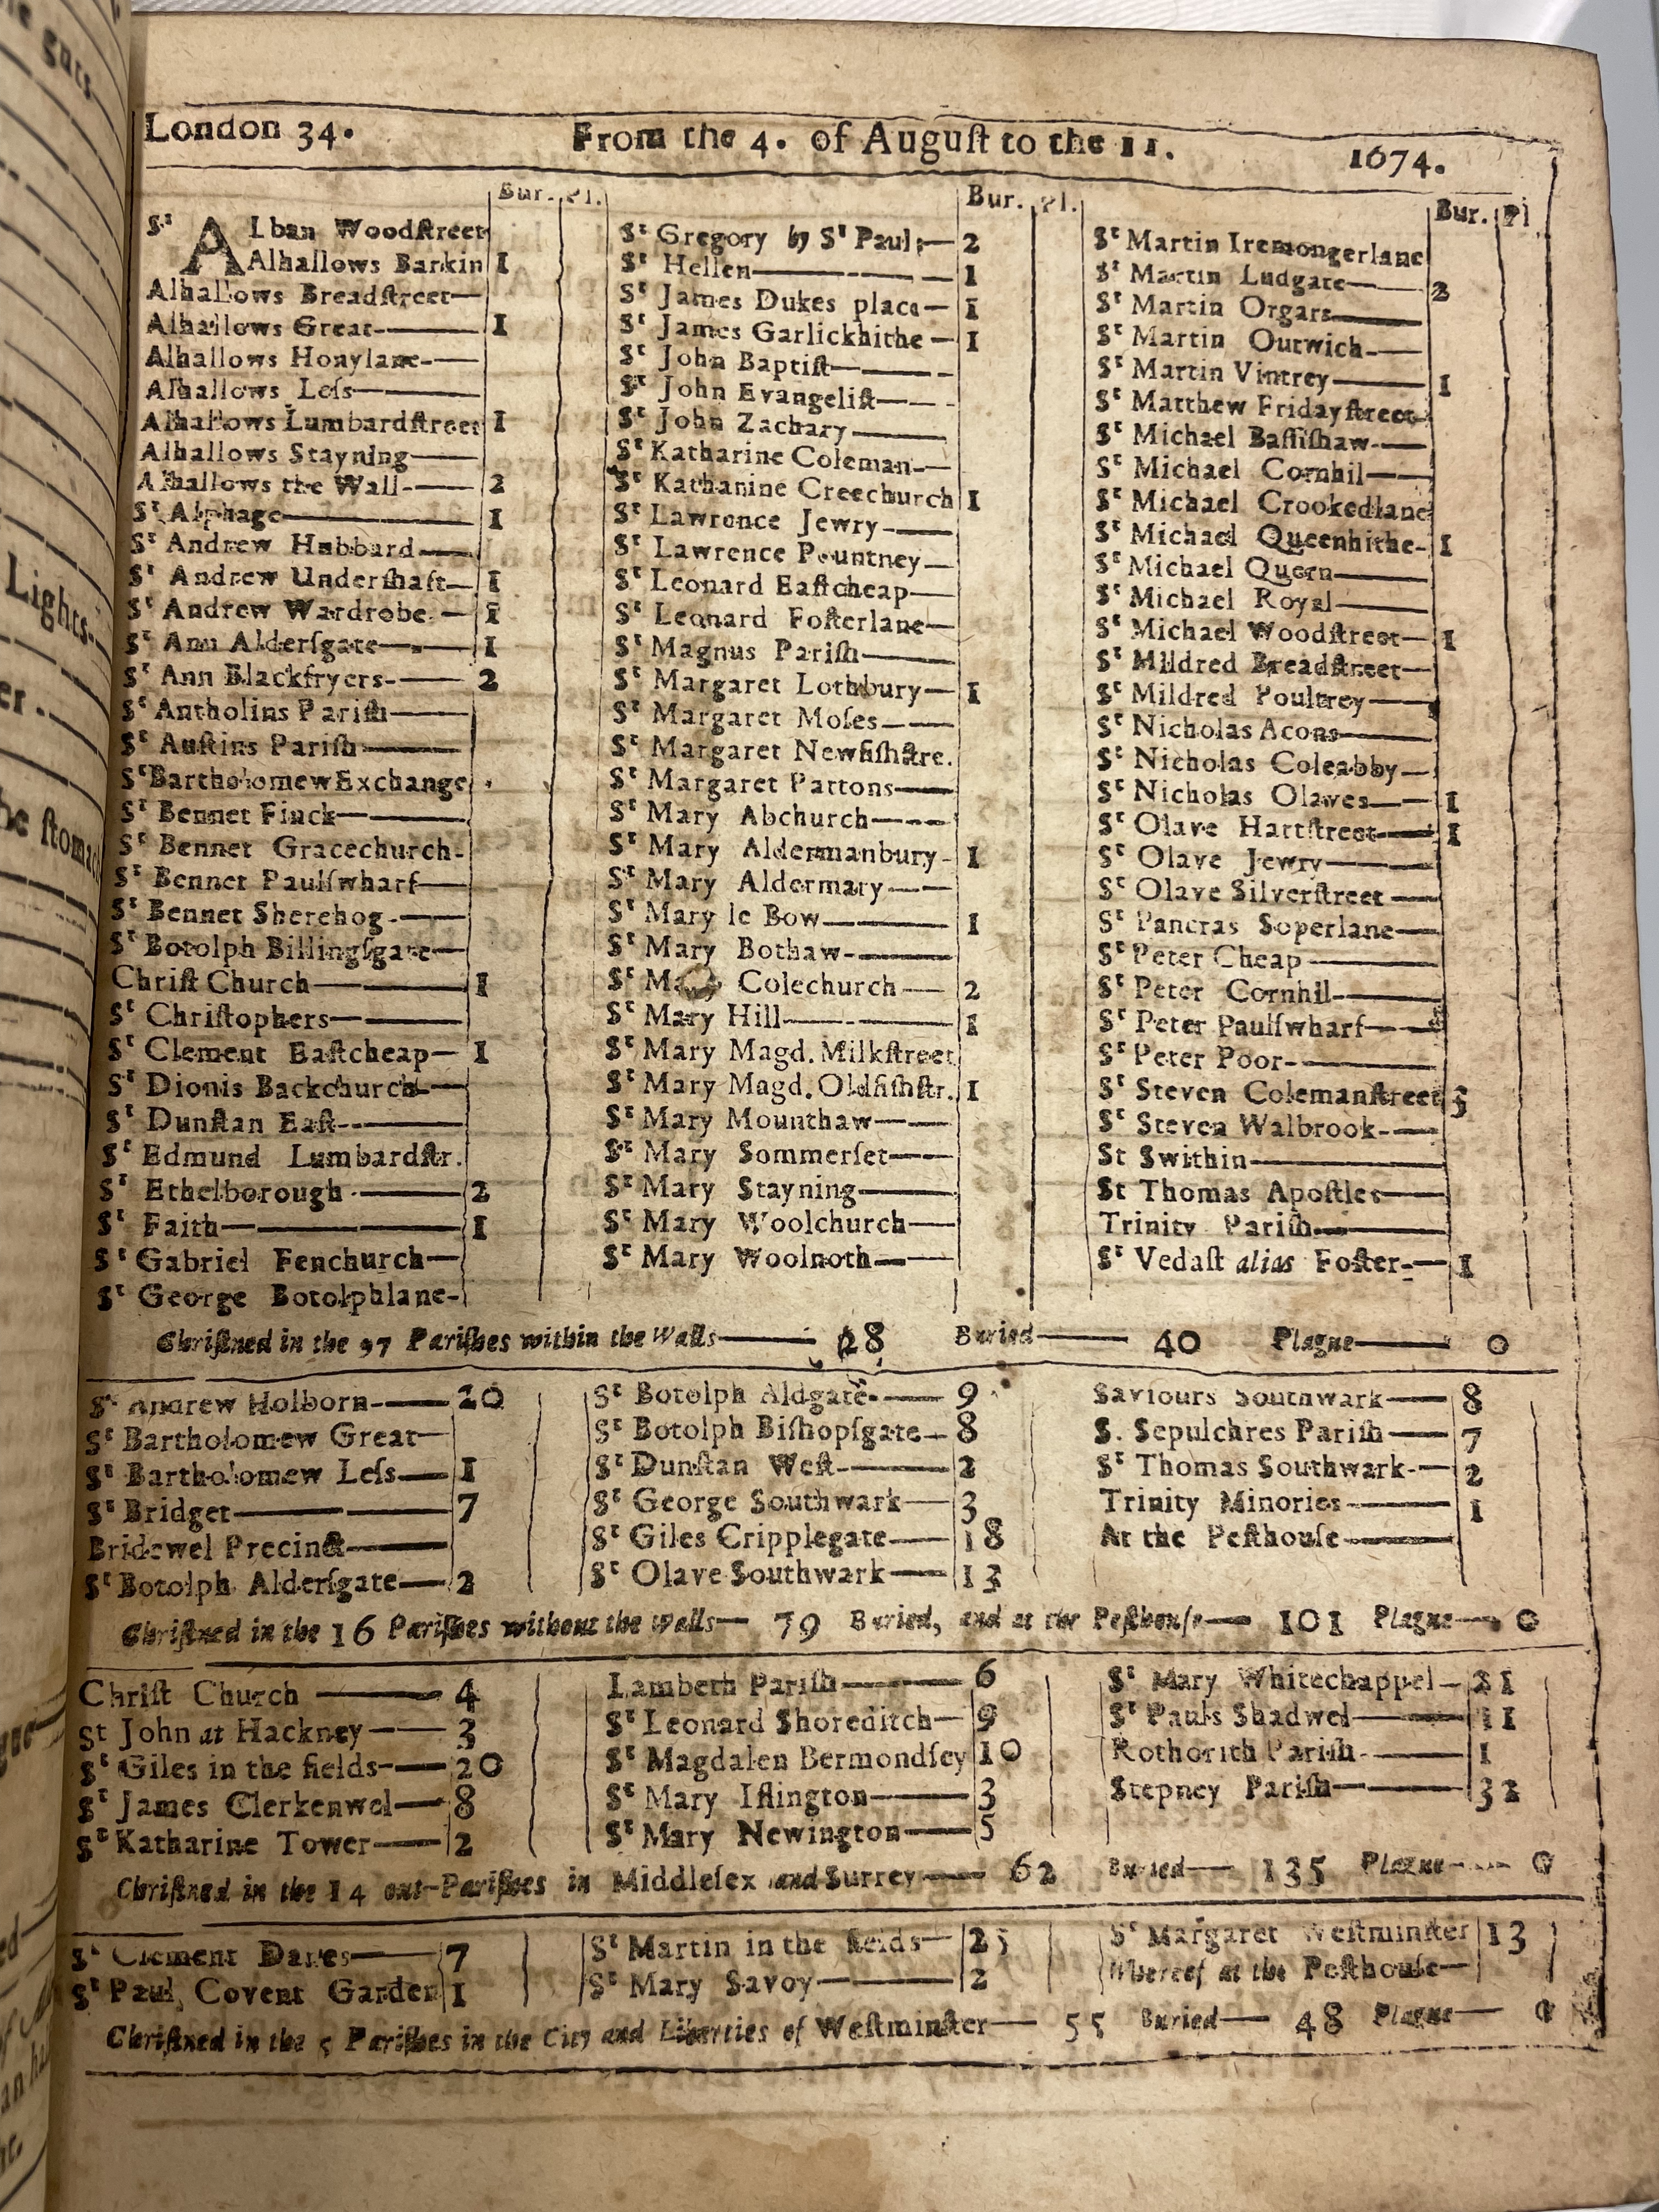 London 34. From the 4. of August to the 11. 1674.
Bur. Pl. Bur. Pl. Bur. Pl.
St ALban Woodstreet
Alhallows Barkin 1
Alhallows Breadstreet—
Alhallows Great-—— 1
Alhallows Honylane-——
Alhallows Leſs——
Alhallows Lumbardſtreet 1
Alhallows Stayning——
Alhallows the Wall-—— 2
St Alphage—— 1
St Andrew Hubbard——
St Andrew Underſhaft— 1
St Andrew Wardrobe-— 1
St Ann Alderſgate—— 1
St Ann Blackfryers-—— 2
St Antholins Pariſh——
St Auſtins Pariſh——
St Bartholomew Exchange
St Bennet Finck——
St Bennet Gracechurch-
St Bennet Paulſwharf——
St Bennet Sherehog-——
St Botolph Billingſgate—
Chriſt Church—— 1
St Chriſtophers——
St Clement Eaſtcheap— 1
St Dionis Backchurch-—
St Dunſtan Eaſt-——
St Edmund Lumbardſtr.
St Ethelborough-—— 2
St Faith—— 1
St Gabriel Fenchurch—
St George Botolphlane-
St Gregory by St Pauls— 2
St Hellen—— 1
St James Dukes place— 1
St James Garlickhithe— 1
St John Baptiſt——
St John Evangeliſt——
St John Zachary——
St Katharine Coleman-—
St Kathanine Creechurch 1
St Lawrence Jewry-——
St Lawrence Pountney—
St Leonard Eaſtcheap—
St Leonard Foſterlane—
St Magnus Pariſh——
St Margaret Lothbury— 1
St Margaret Moſes——
St Margaret Newfiſhſtre.
St Margaret Pattons——
St Mary Abchurch——
St Mary Aldermanbury- 1
St Mary Aldermary——
St Mary le Bow—— 1
St Mary Bothaw-——
St Mary Colechurch— 2
St Mary Hill—— 1
St Mary Magd. Milkſtreet
St Mary Magd. Oldfiſhſtr. 1
St Mary Mounthaw——
St Mary Sommerſet——
St Mary Stayning——
St Mary Woolchurch—
St Mary Woolnoth——
St Martin Iremongerlane
St Martin Ludgate—— 2
St Martin Orgars——
St Martin Outwich-——
St Martin Vintrey—— 1
St Matthew Fridayſtreet
St Michael Baſſiſhaw-—
St Michael Cornhil——
St Michael Crookedlane
St Michael Queenhithe- 1
St Michael Quern——
St Michael Royal——
St Michael Woodſtreet— 1
St Mildred Breadſtreet—
St Mildred Poultrey——
St Nicholas Acons——
St Nicholas Coleabby—
St Nicholas Olaves—— 1
St Olave Hartſtreet—— 1
St Olave Jewry——
St Olave Silverſtreet——
St Pancras Soperlane—
St Peter Cheap——
St Peter Cornhil——
St Peter Paulſwharf——
St Peter Poor-——
St Steven Colemanſtreet 5
St Steven Walbrook-—
St Swithin——
St Thomas Apoſtle——
Trinity Pariſh——
St Vedaſt alias Foſter-— 1
Chriſtned in the 97 Pariſhes within the Walls—— 28 Buried—— 40 Plague—— 0
St Andrew Holborn-—— 20
St Bartholomew Great—
St Bartholomew Leſs— 1
St Bridget—— 7
Bridewel Precinct——
St Botolph Alderſgate— 2
St Botolph Aldgate-—— 9
St Botolph Biſhopſgate— 8
St Dunſtan Weſt-—— 2
St George Southwark— 3
St Giles Cripplegate—— 18
St Olave Southwark—— 13
Saviours Southwark—— 8
S. Sepulchres Pariſh—— 7
St Thomas Southwark-— 2
Trinity Minories—— 1
At the Peſthouſe——
Chriſtned in the 16 Pariſhes without the Walls— 79 Buried, and at the Peſthouſe— 101 Plague— 0
Chriſt Church —— 4
St John at Hackney—— 3
St Giles in the fields-— 20
St James Clerkenwel— 8
St Katharine Tower—— 2
Lambeth Pariſh—— 6
St Leonard Shoreditch— 9
St Magdalen Bermondſey 10
St Mary Iſlington—— 3
St Mary Newington—— 5
St Mary Whitechappel— 21
St Pauls Shadwel—— 11
Rothorith Pariſh-—— 1
Stepney Pariſh—— 32
Chriſtned in the 14 out-Pariſhes in Middleſex and Surrey—— 62 Buried—— 135 Plague—— 0
St Clement Danes—— 7
St Paul Covent Garden 1
St Martin in the fields— 25
St Mary Savoy—— 2
St Margaret Weſtminſter 13
Whereof at the Peſthouſe—
Chriſtned in the 5 Pariſhes in the City and Liberties of Weſtminſter— 55 Buried— 48 Plague— 0